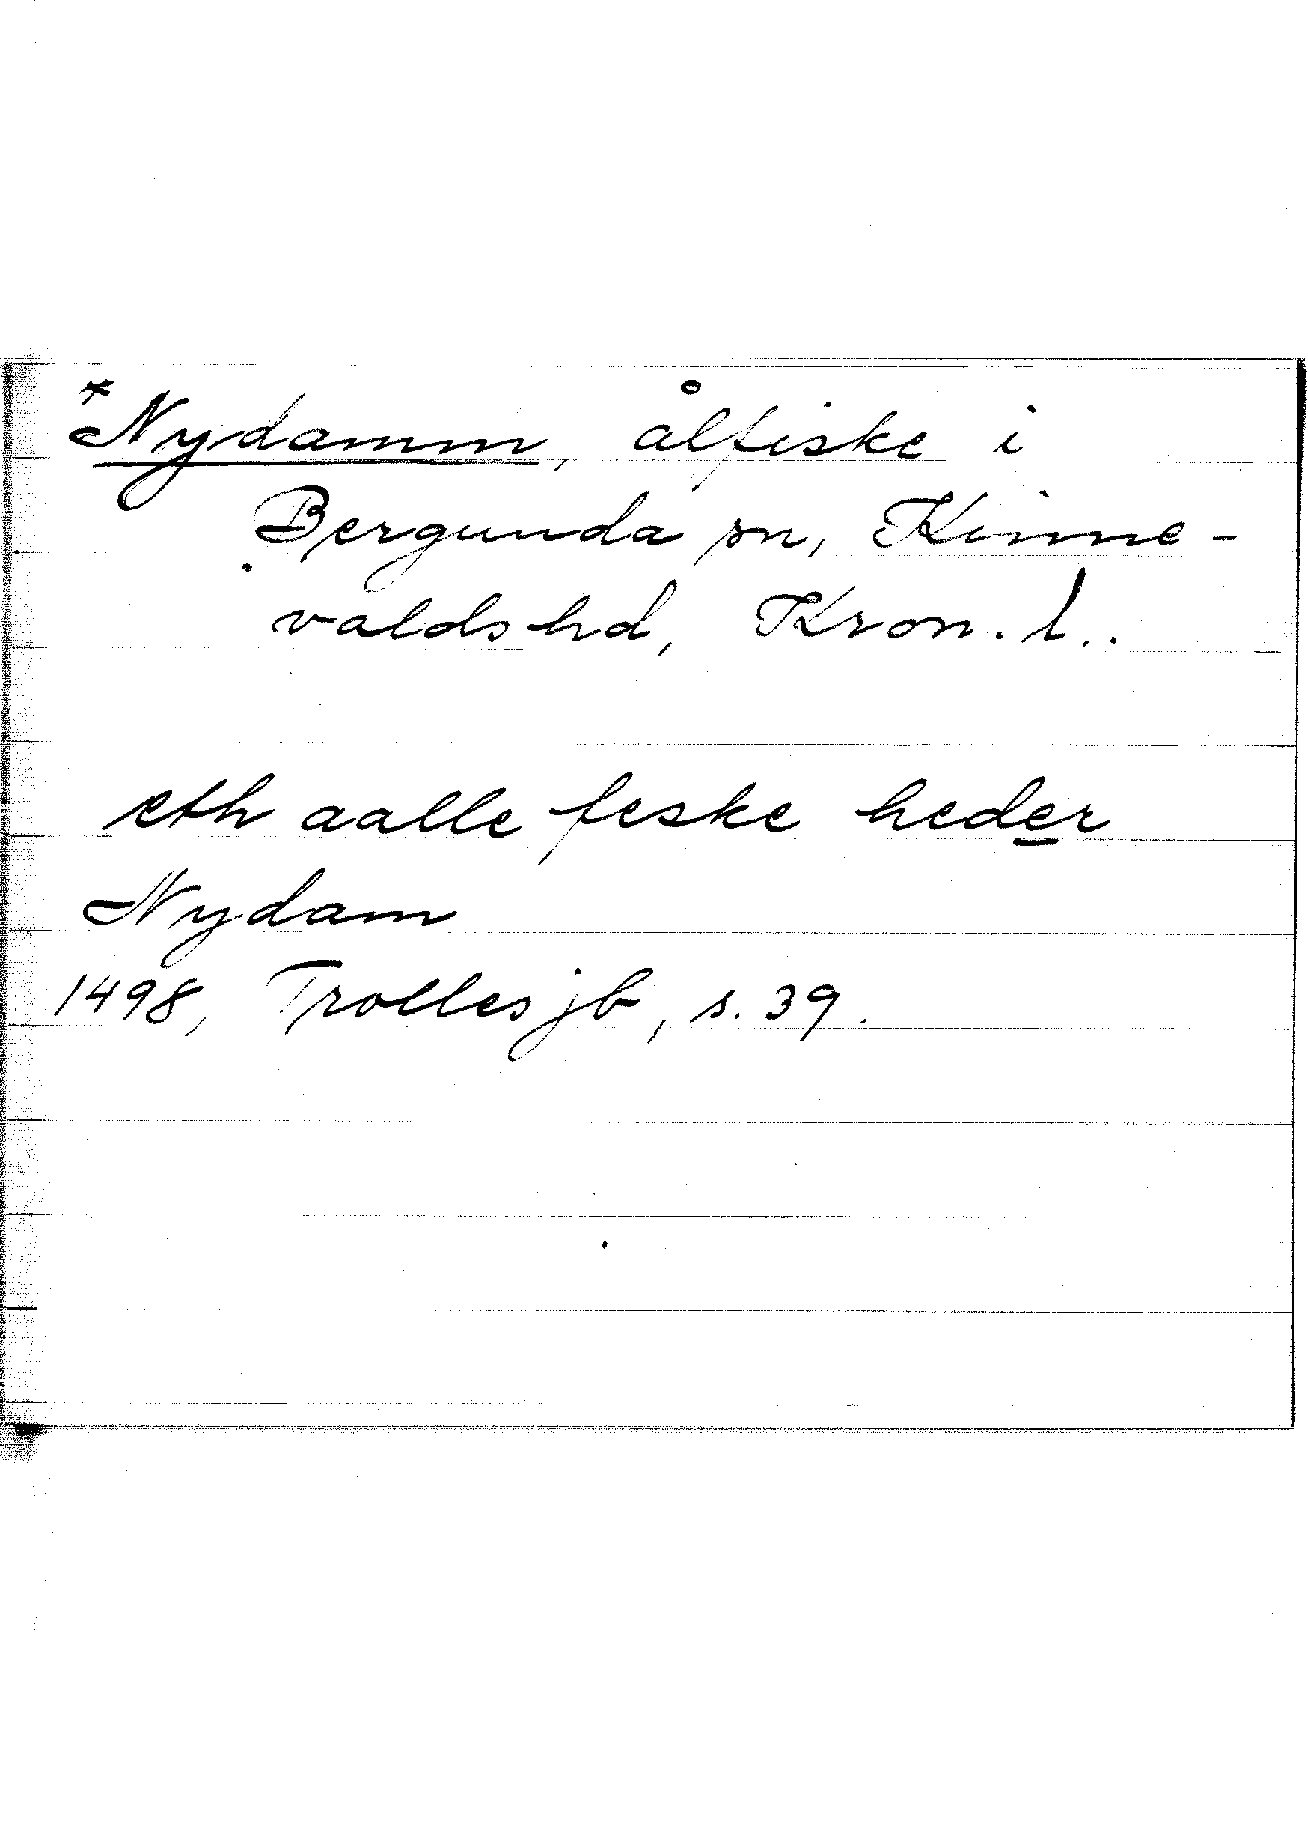 *Nydamm, ålfiske i
Bergunda sn, Kinne-
valdshd, Kron. l..
eth aalle feske heder
Nydam
1498, Trolles jb, s. 39.